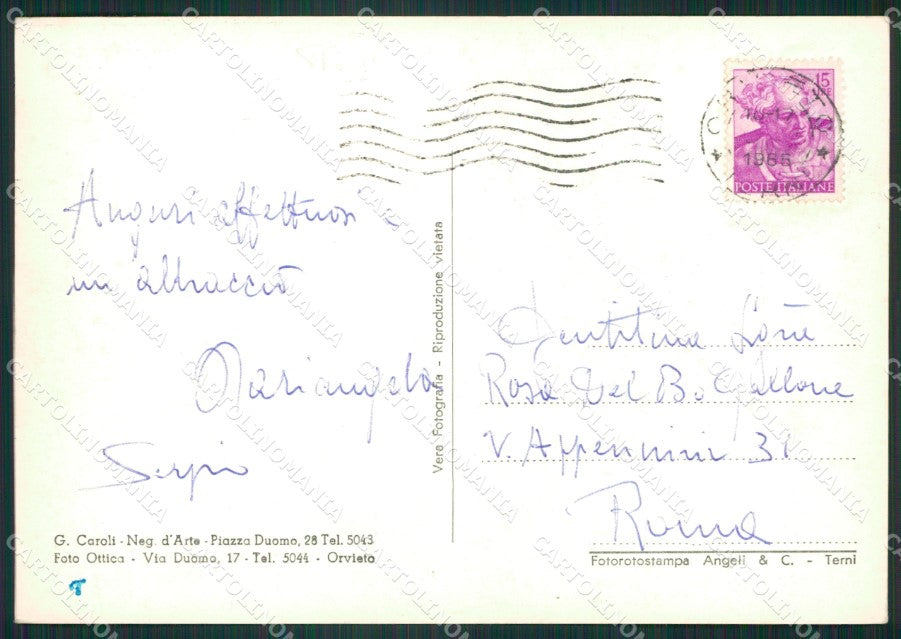 15
POSTE ITALIANE
1965
Auguri affettuosi
un abbraccio
Mariangela
Sergio
Gentilina
Rosa Del B.
V. Appennini 31
Roma
Vera Fotografia - Riproduzione vietata
G. Caroli - Neg. d'Arte - Piazza Duomo, 28 Tel. 5043
Foto Ottica - Via Duomo, 17 - Tel. 5044 - Orvieto
Fotorotostampa Angeli & C. - Terni
CARTOLINOMANIA